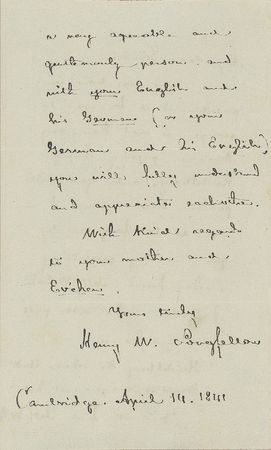 a very agreeable and
gentlemanly person, and
with your English and
his German (or your
German and his English,)
you will fully understand
and appreciate each other.
With kind regards
to your mother and
Evchen.
Yours truly
Henry W. Longfellow
Cambridge. April 14. 1841